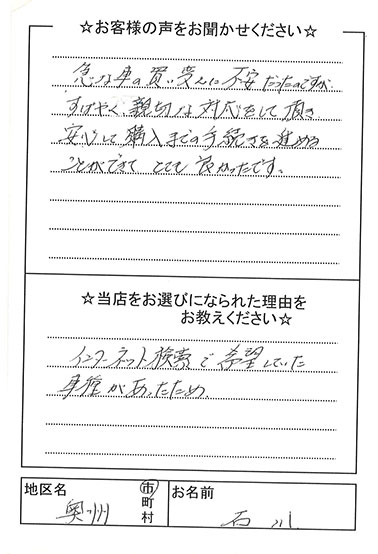 ☆お客様の声をお聞かせください☆
急な車の買い受えに不安だったのですが、
すばやく、親切な対応をして頂き
安心して購入までの手続きを進める
ことができて とても良かったです。
☆当店をお選びになられた理由を
お教えください☆
インターネット検索で希望していた
車種があったため。
地区名 奥州 市町村 お名前 石川